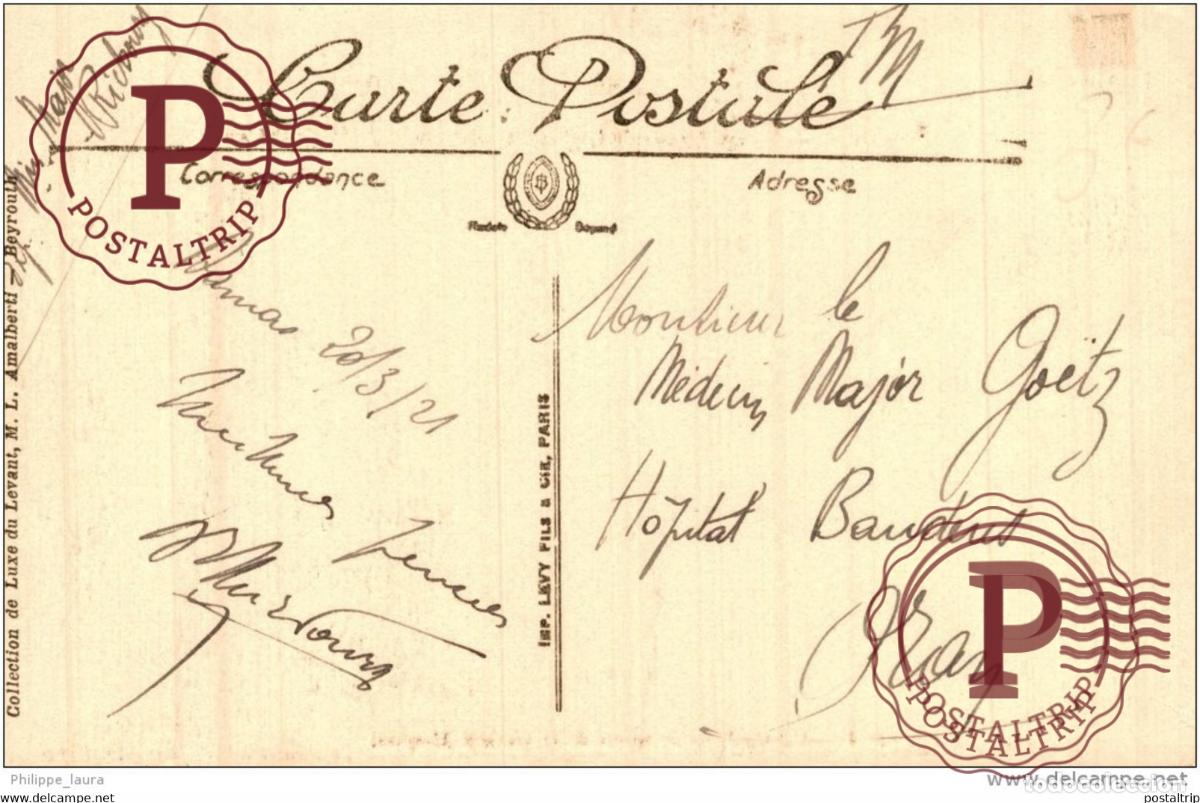 Carte Postale
FM
Correspondance
Adresse
Modèle Déposé
Collection de Luxe du Levant, M. L. Amalberti — Beyrouth
IMP. LEVY FILS & CIE, PARIS
Damas 20/3/21
Monsieur le
Médecin Major Goëtz
Hôpital Baudens
Oran
P
POSTALTRIP
P
POSTALTRIP
POSTALTRIP
Philippe_laura
www.delcampe.net
todocoleccion
www.todocoleccion.net
postaltrip